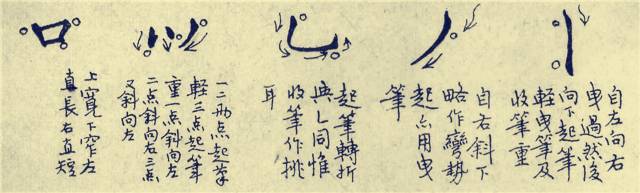 自左向右
曳過然後
向下起筆
輕曳筆及
收筆重
自右斜下
略作彎勢
起亦用曳
筆
起筆轉折
與乚同惟
收筆作挑
耳
一二两点起筆
輕三点起筆
重一点斜向左
二点斜向右三点
又斜向左
上寬下窄左
直長右直短